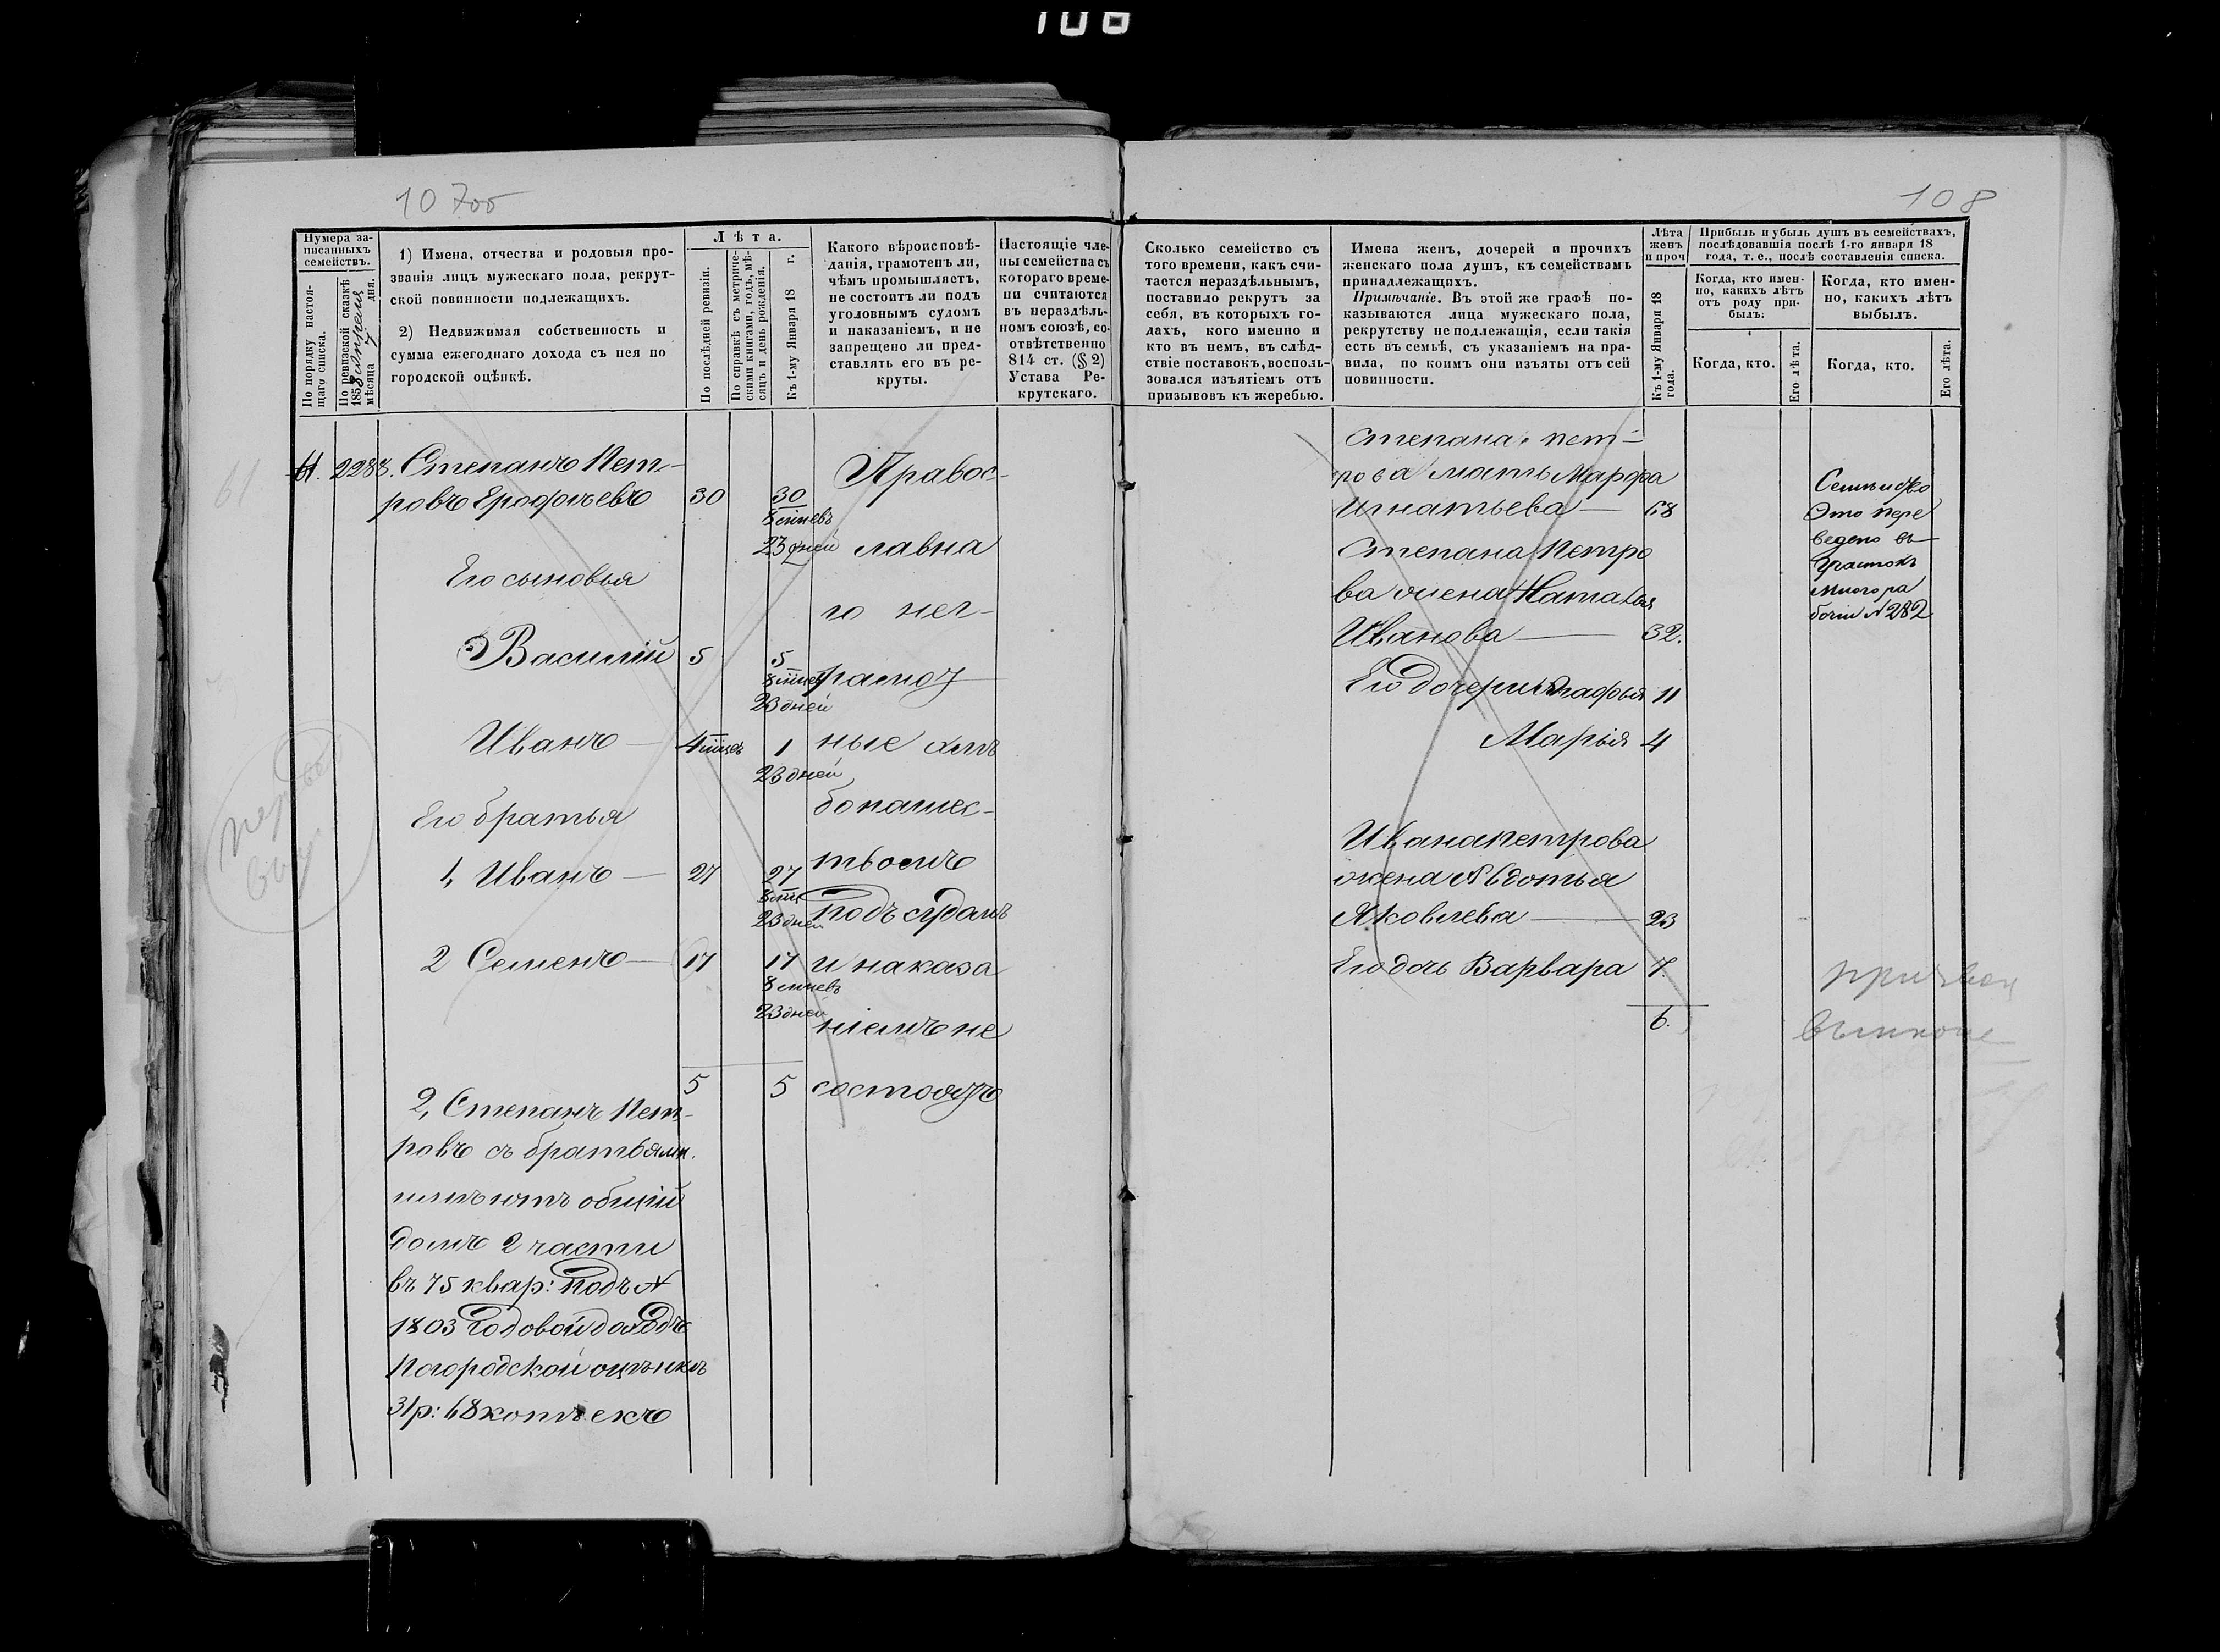 108
10 700
108
Нумера записанныхъ семействъ.
По порядку настоящаго списка.
По ревизской сказкѣ 1858 Апреля мѣсяца 7 дня.
1) Имена, отчества и родовыя прозванія лицъ мужескаго пола, рекрутской повинности подлежащихъ.
2) Недвижимая собственность и сумма ежегоднаго дохода съ нея по городской оцѣнкѣ.
Лѣта.
По послѣдней ревизіи.
По справкѣ съ метрическими книгами, годъ, мѣсяцъ и день рожденія.
Къ 1-му Января 18 г.
Какого вѣроисповѣданія, грамотенъ ли, чѣмъ промышляетъ, не состоитъ ли подъ уголовнымъ судомъ и наказаніемъ, и не запрещено ли представлять его въ рекруты.
Настоящіе члены семейства съ котораго времени считаются въ нераздѣльномъ союзѣ, соотвѣтственно 814 ст. (§ 2) Устава Рекрутскаго.
Сколько семейство съ того времени, какъ считается нераздѣльнымъ, поставило рекрутъ за себя, въ которыхъ годахъ, кого именно и кто въ немъ, въ слѣдствіе поставокъ, воспользовался изъятіемъ отъ призывовъ къ жеребью.
Имена женъ, дочерей и прочихъ женскаго пола душъ, къ семействамъ принадлежащихъ.
Примѣчаніе. Въ этой же графѣ показываются лица мужескаго пола, рекрутству не подлежащія, если такія есть въ семьѣ, съ указаніемъ на правила, по коимъ они изъяты отъ сей повинности.
Лѣта женъ и проч
Къ 1-му Января 18 года.
Прибыль и убыль душъ въ семействахъ, послѣдовавшія послѣ 1-го января 18 года, т. е., послѣ составленія списка.
Когда, кто именно, какихъ лѣтъ отъ роду прибылъ.
Когда, кто именно, какихъ лѣтъ выбылъ.
Когда, кто.
Его лѣта.
Когда, кто.
Его лѣта.
61
61. 2288. Степанъ Пет-
ровъ Ерофѣевъ 30 30
8 м͞цевъ
23 дней
Его сыновья
Василій 5 5
8 м͞цевъ
23 дней
Иванъ 4 м͞цевъ 1
23 дней
Его братья
1, Иванъ 27 27
8 м͞ц
23 дней
2 Семенъ 17 17
8 м͞цевъ
23 дней
5 5
2, Степанъ Пет-
ровъ съ братьями.
имѣютъ общій
домъ 2 части
въ 75 квар: подъ N
1803 годовой доходъ
по городской оцѣнкѣ
31р: 68 копѣекъ
Правос-
лавна
го нег-
рамот
ные хлѣ
бопашес-
твомъ
подъ судомъ
и наказа
ніемъ не
состоятъ
Степана Пет-
рова мать Марфа
Игнатьева 68
Степана Петро
ва жена Наталья
Иванова 32.
Его дочери Агафья 11
Марья 4
Ивана Петрова
жена Авдотья
Яковлева 23
Его дочь Варвара 7.
6.
Семейство
Это пере
ведено въ
Участокъ
многора
бочіи N 282